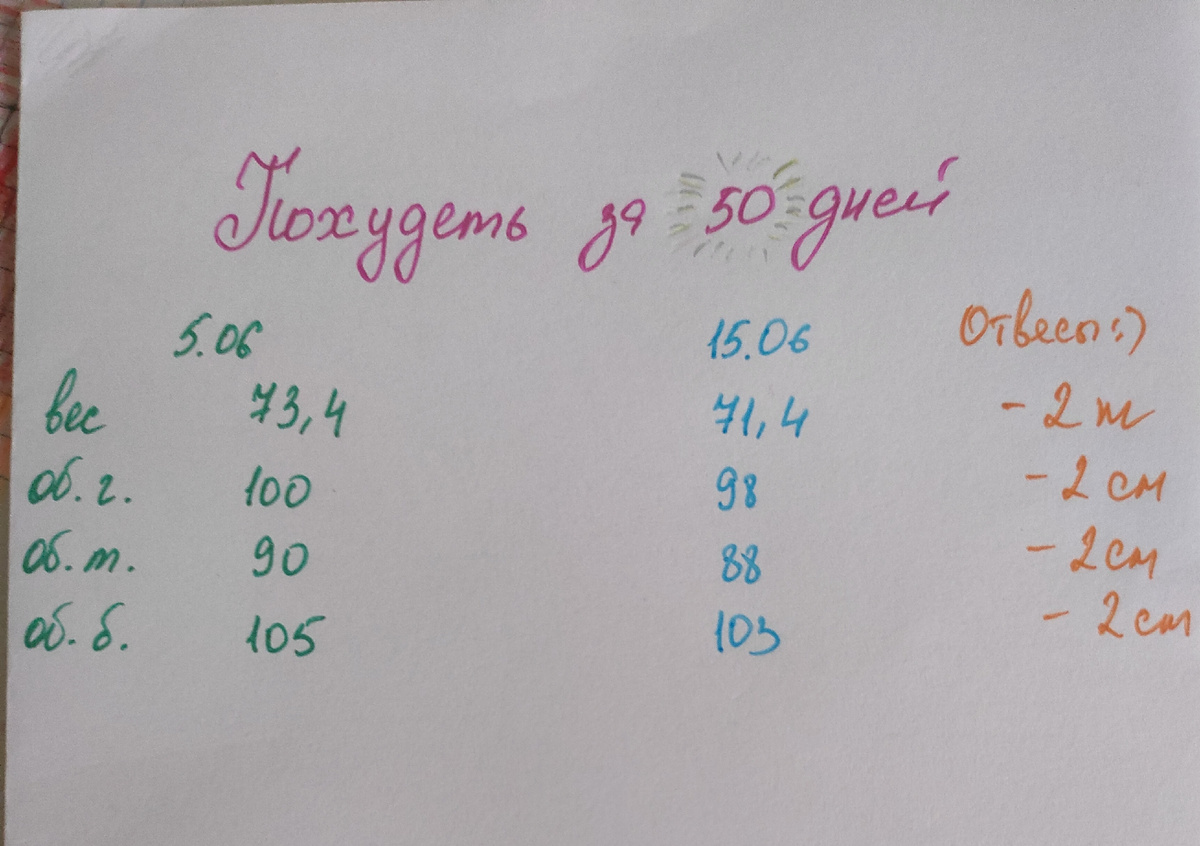 Похудеть за 50 дней
5.06 15.06 Отвесы:)
вес 73,4 71,4 - 2
об. г. 100 98 - 2 см
об. т. 90 88 - 2 см
об. б. 105 103 - 2 см